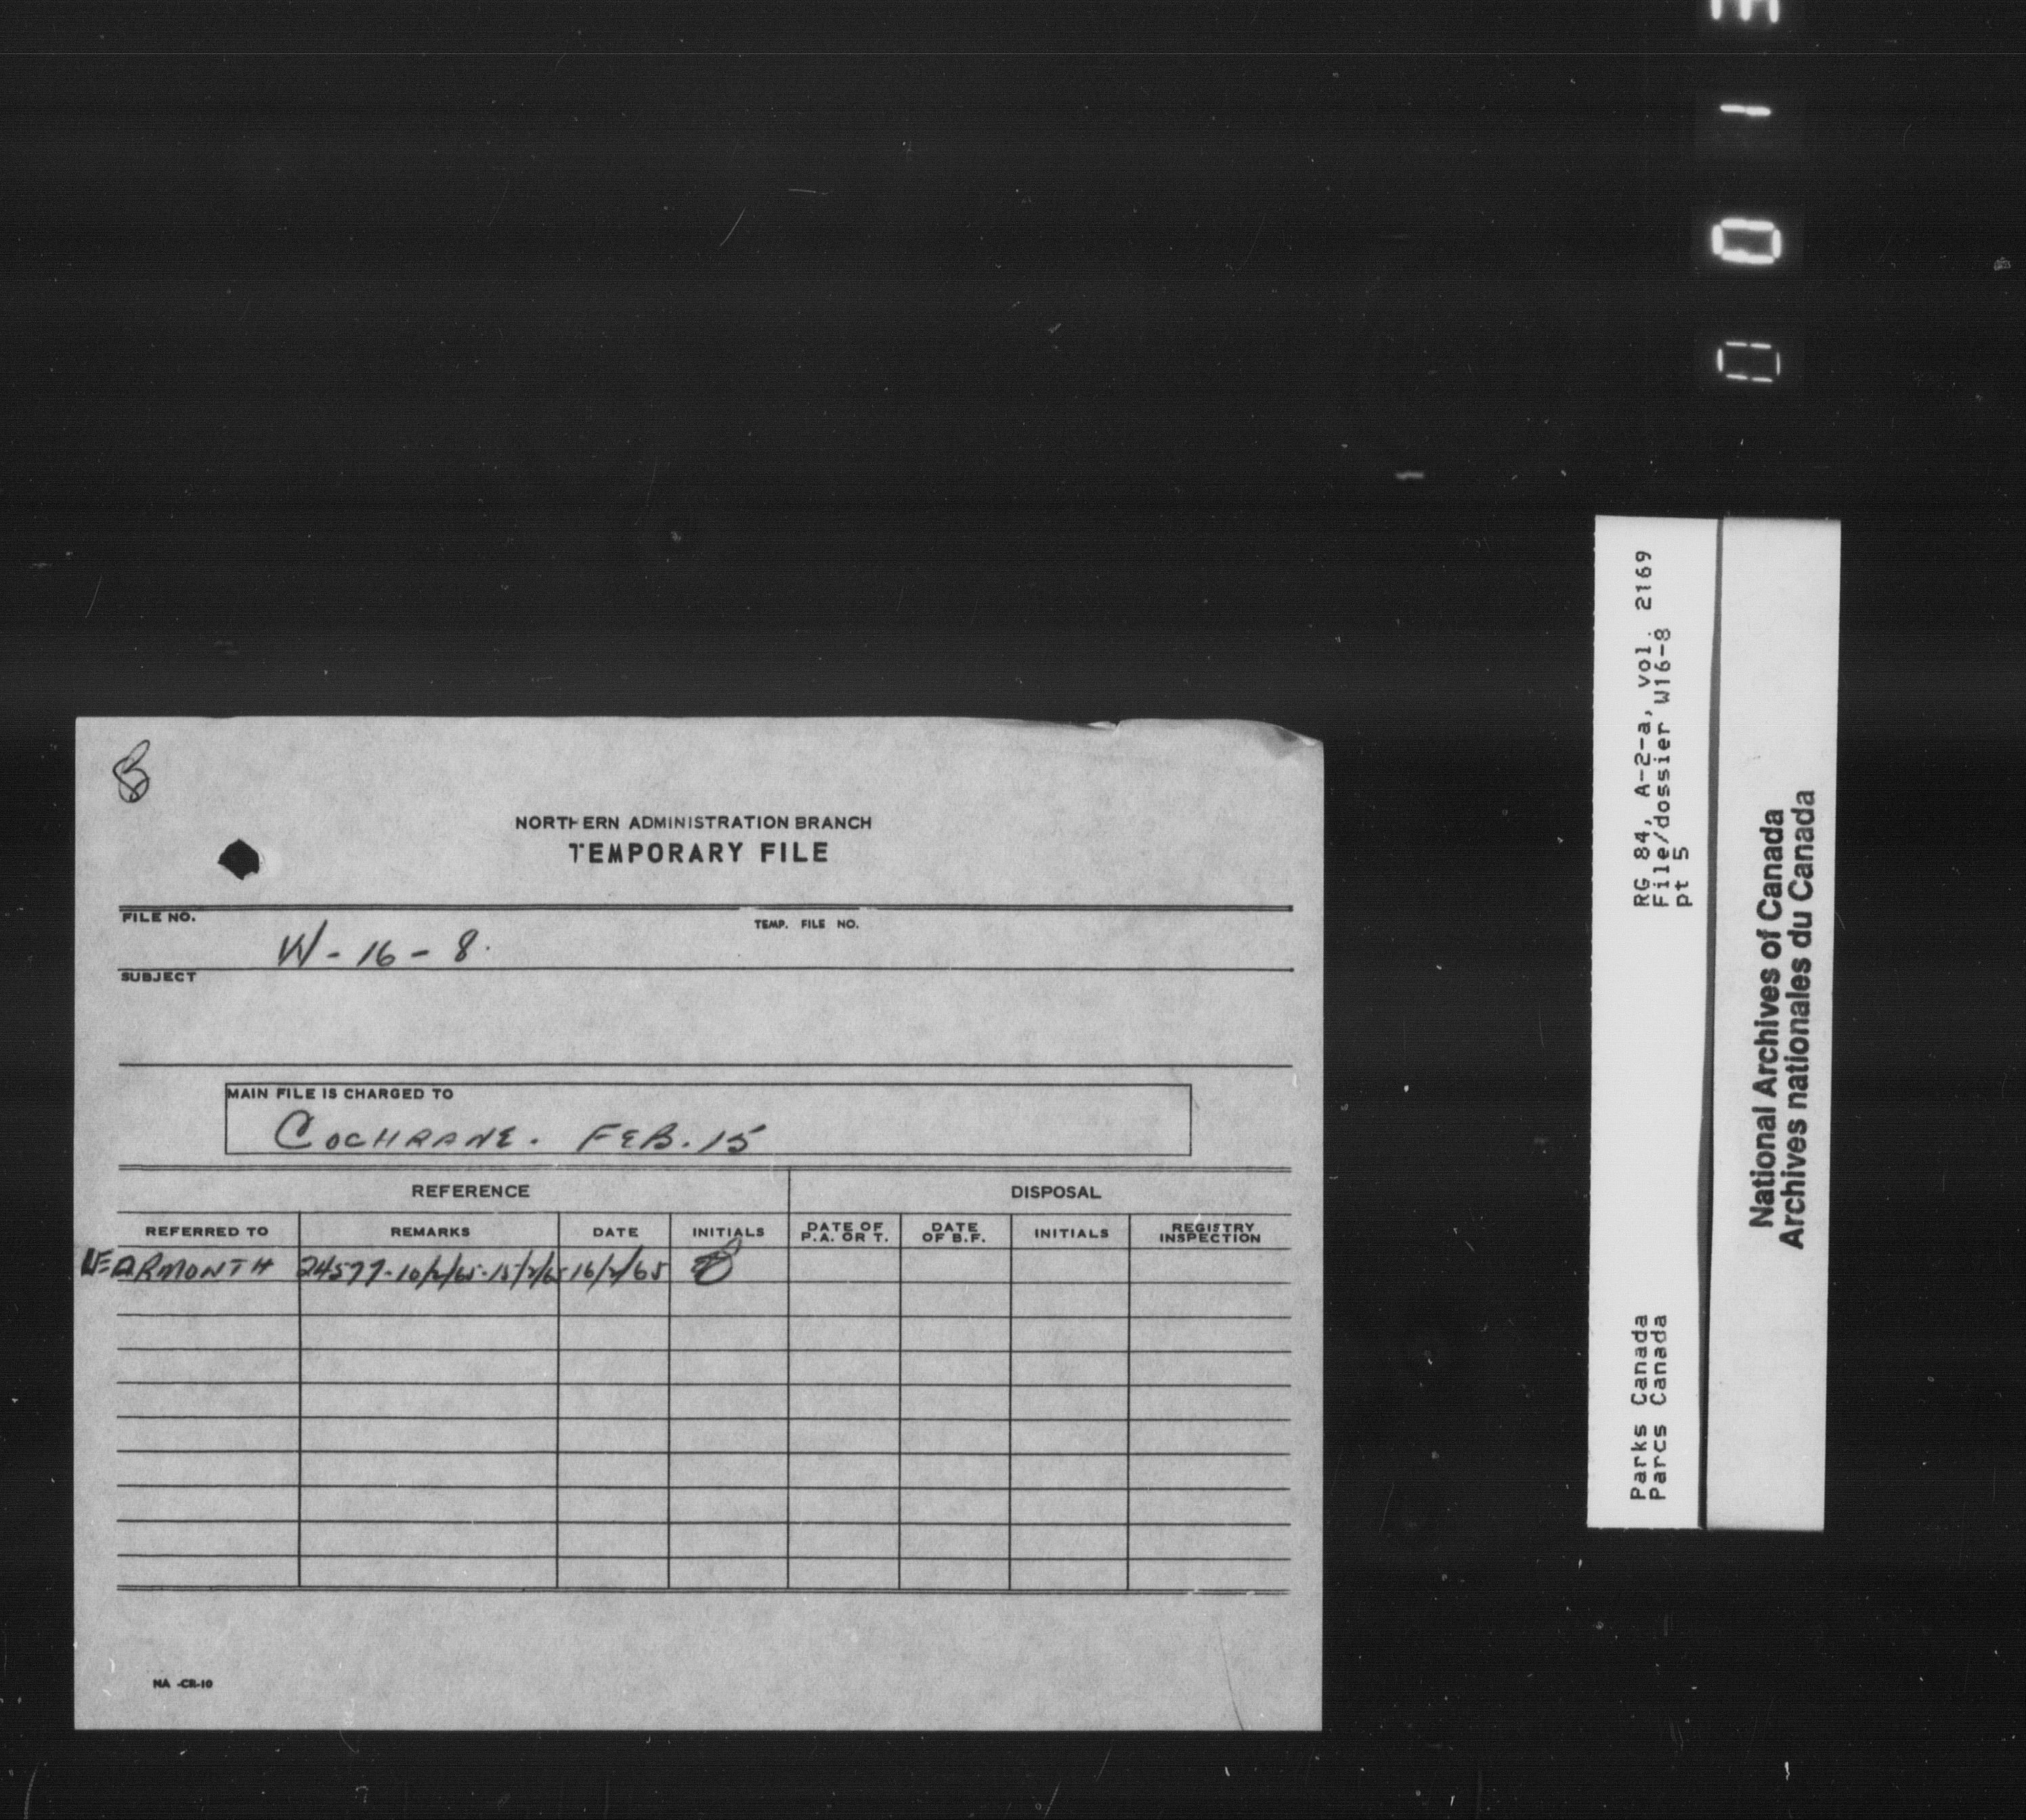 8
NORTHERN ADMINISTRATION BRANCH
TEMPORARY FILE
FILE NO.
TEMP. FILE NO.
W-16-8.
SUBJECT
MAIN FILE IS CHARGED TO
COCHRANE. FEB. 15
REFERENCE
DISPOSAL
REFERRED TO
REMARKS
DATE
INITIALS
DATE OF P.A. OR T.
DATE OF B.F.
INITIALS
REGISTRY INSPECTION
LEARMONTH 24577-10/2/65-15/2/65 16/2/65
NA -CR-10
RG 84, A-2-a, vol. 2169
File/dossier W16-8
pt 5
Parks Canada
Parcs Canada
National Archives of Canada
Archives nationales du Canada